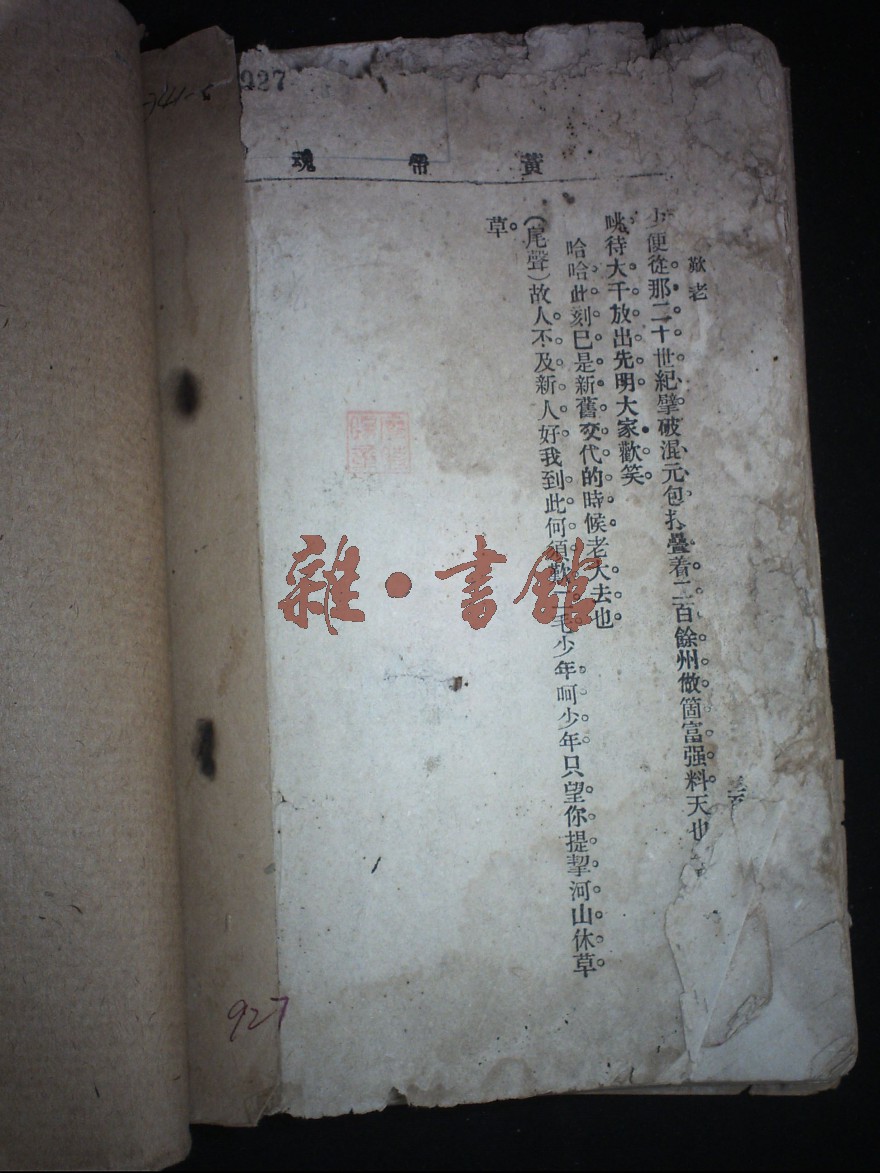 927
黃帝魂
歎老
少便從那二十世紀擘破混元包打疊着二百餘州做箇富强料天也
咷待大千放出先明大家歡笑
哈哈此刻巳是新舊交代的時候老大去也
(尾聲)故人不及新人好我到此何須歎二毛少年呵少年只望你提挈河山休草
草
雜·書館
927